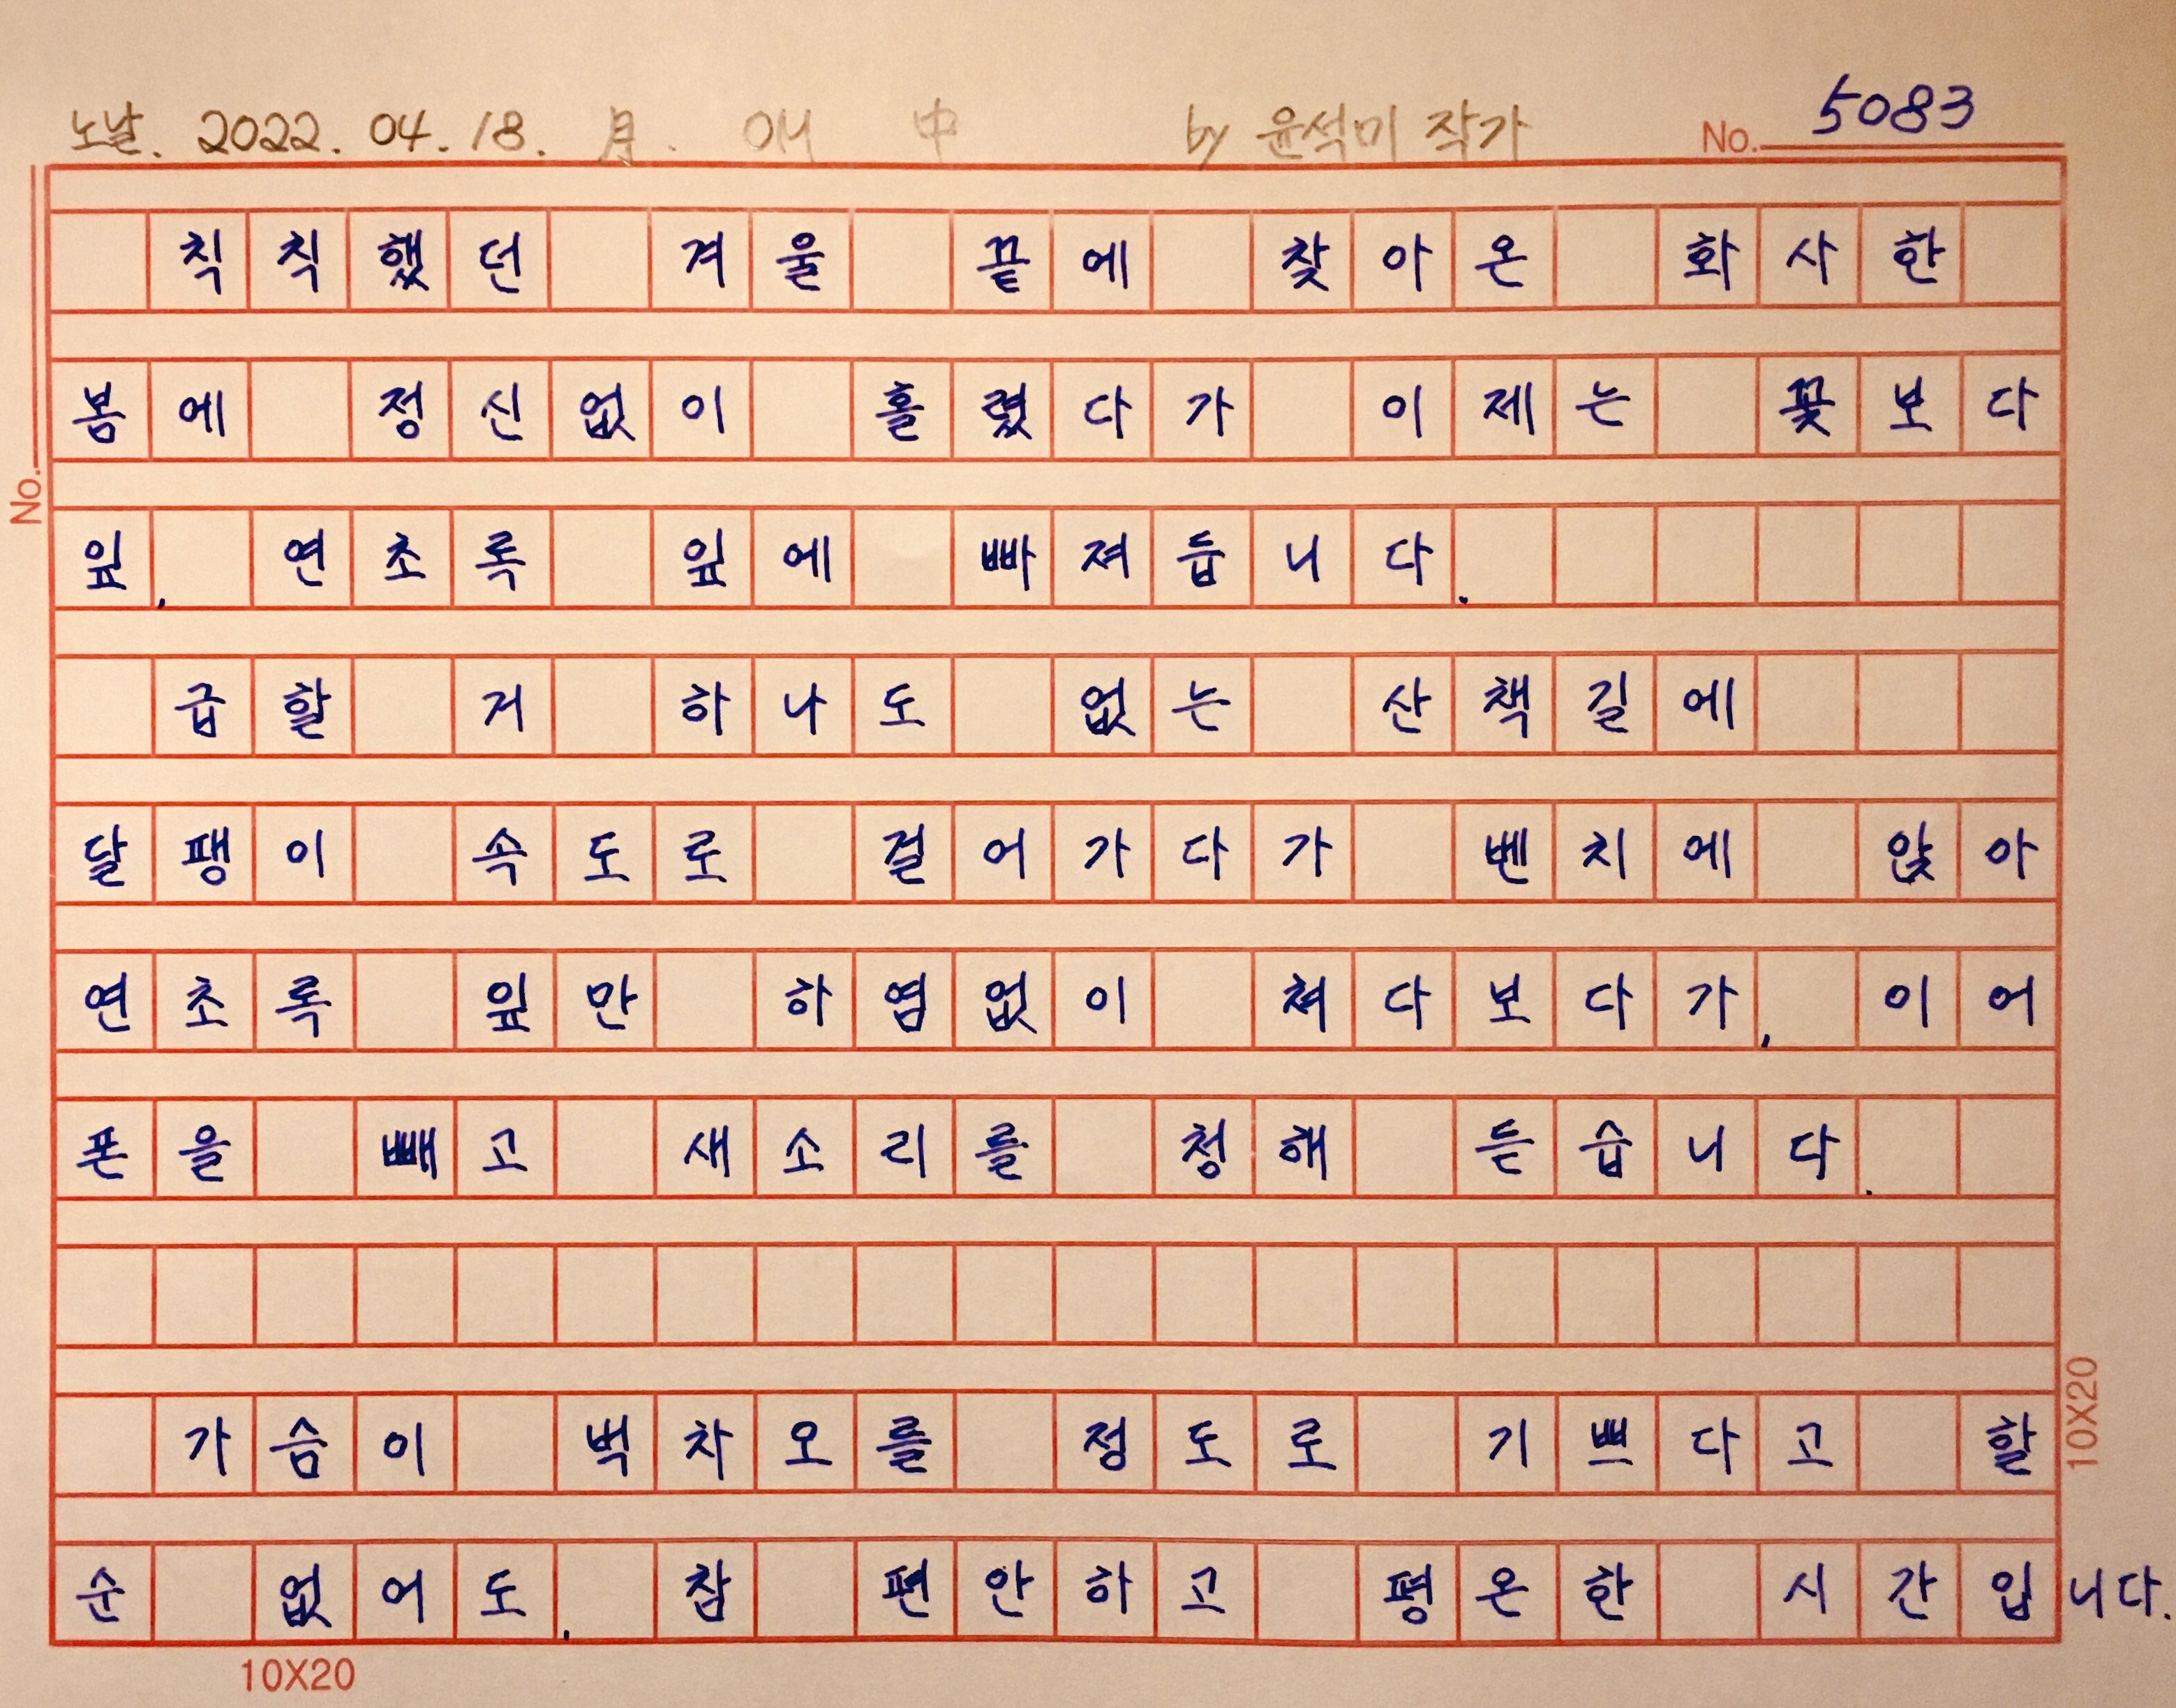 노날. 2022. 04. 18. 月. 애 中 by 윤석미 작가 No. 5083
칙칙했던 겨울 끝에 찾아온 화사한
봄에 정신없이 홀렸다가 이제는 꽃보다
잎, 연초록 잎에 빠져듭니다.
급할 거 하나도 없는 산책길에
달팽이 속도로 걸어가다가 벤치에 앉아
연초록 잎만 하염없이 쳐다보다가, 이어
폰을 빼고 새소리를 청해 듣습니다.
가슴이 벅차오를 정도로 기쁘다고 할
순 없어도, 참 편안하고 평온한 시간입니다.
No.
10X20
10X20